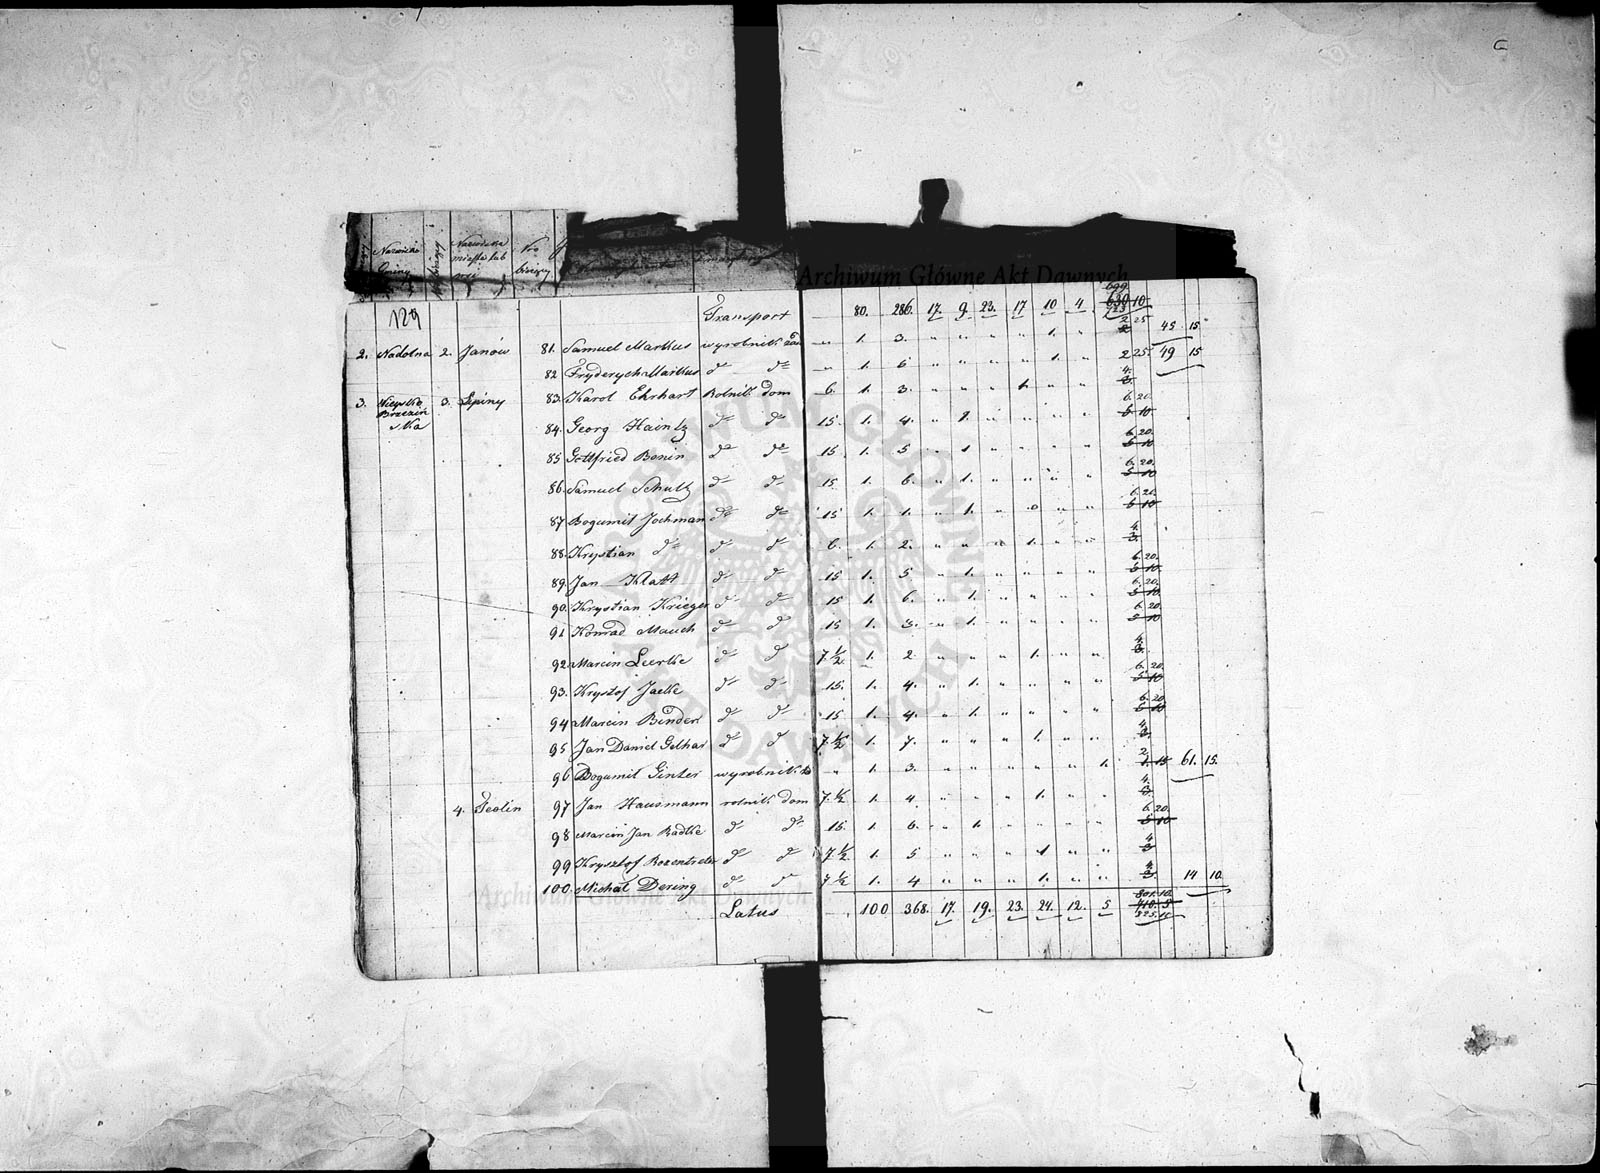 Nazwisko Gminy Nazwiska miasta lub wsi No bieżący
Archiwum Główne Akt Dawnych
129 Transport 80. 286. 17. 9. 23. 17 10 4 699 630 10 723
2. Nadolna 2. Janów 81. Samuel Markus wyrobnik " 1. 3. " " " " 1. " 2 25 45 15
82 Fryderych Markus do do " 1. 6 " " " " 1. " 2 25. 49 15
3. Nieysko Brzezińska 3. Lipiny 83. Karol Ehrhart Rolnik dom 6. 1. 3. " " " 1. " " 4. 3.
84. Georg Haintz do do 15. 1. 4. " 1. " " " " 6. 20. 5 10
85 Gottfried Bonin do do 15 1. 5 " 1 " " " " 6. 20. 5 10
86. Samuel Schultz do do 15. 1. 6. " 1. " " " " 6. 20. 5 10
87 Bogumił Jochman do do 15 1. 1. " 1. " " " " 6. 20. 5 10
88. Krystian do do do 6. 1. 2. " " " 1. " " 4. 3.
89. Jan Klatt do do 15 1. 5. " 1. " " " " 6. 20. 5 10.
90. Krystian Krieger do do 15 1. 6. " 1. " " " " 6. 20. 5 10.
91 Konrad Mauch do do 15 1. 3. " 1. " " " " 6. 20. 5 10
92 Marcin Luerke do do 7 1/2 1. 2 " " " 1. " " 4. 3.
93. Krysztof Jaelke do do 15. 1. 4. " 1. " " " " 6. 20. 5 10
94 Marcin Binder do do 15 1. 4. " 1. " " " " 6. 20. 5 10
95 Jan Daniel Gelhar do do 7 1/2 1. 7. " " " 1. " " 4. 3.
96 Bogumił Ginter wyrobnik " 1. 3. " " " " " 1. 2 1. 15 61. 15.
4. Teolin 97 Jan Hausmann rolnik dom 7 1/2 1. 4. " " " 1. " " 4. 3.
98 Marcin Jan Radtke do do 15. 1. 6. " 1. " " " " 6. 20. 5 10
99 Krysztof Rozentreter do do 7 1/2 1. 5 " " " 1 " " 4 3
100. Michał Dering do do 7 1/2 1. 4 " " " 1. " " 4 3. 14 10.
Archiwum Główne Akt Dawnych
Latus 100 368. 17. 19. 23. 24. 12. 5 801. 10. 710. 5 825. 15